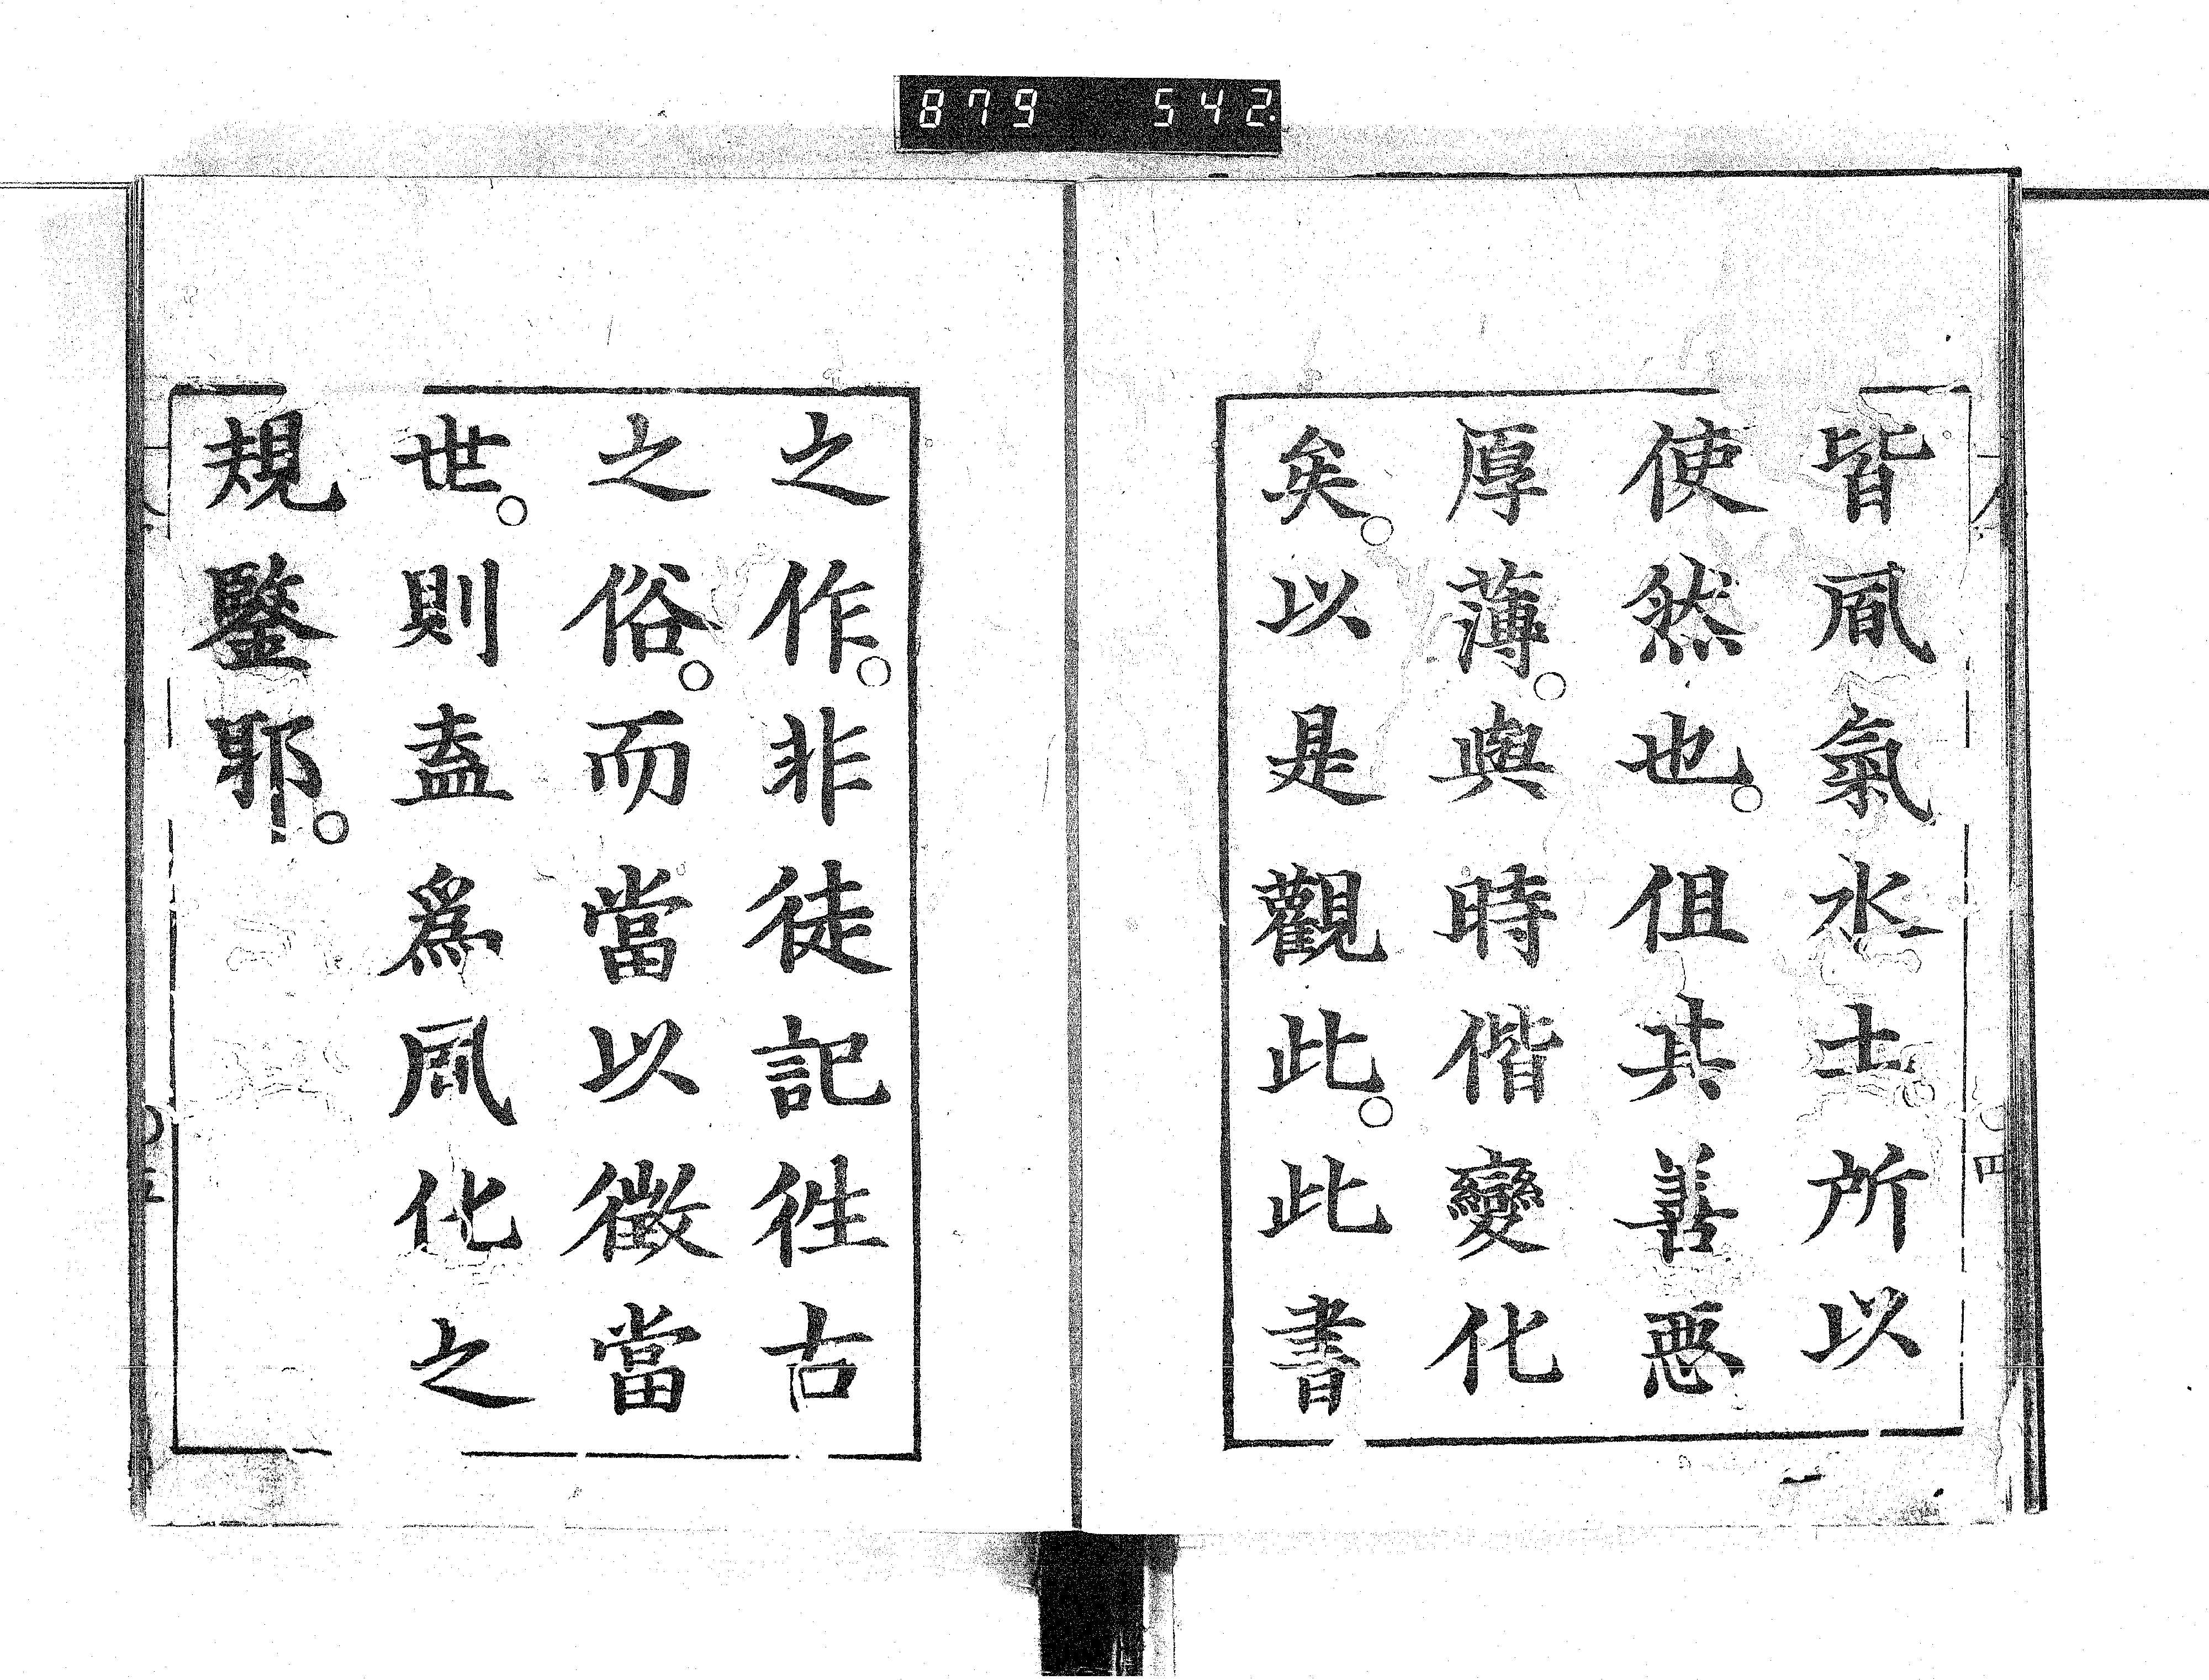 879 542
皆凮氣水土所以
使然也。但其善惡
厚薄。與時偕變化
矣。以是觀此。此書
之作。非徒記徃古
之俗。而當以徵當
世。則盍爲凮化之
規鑒耶。